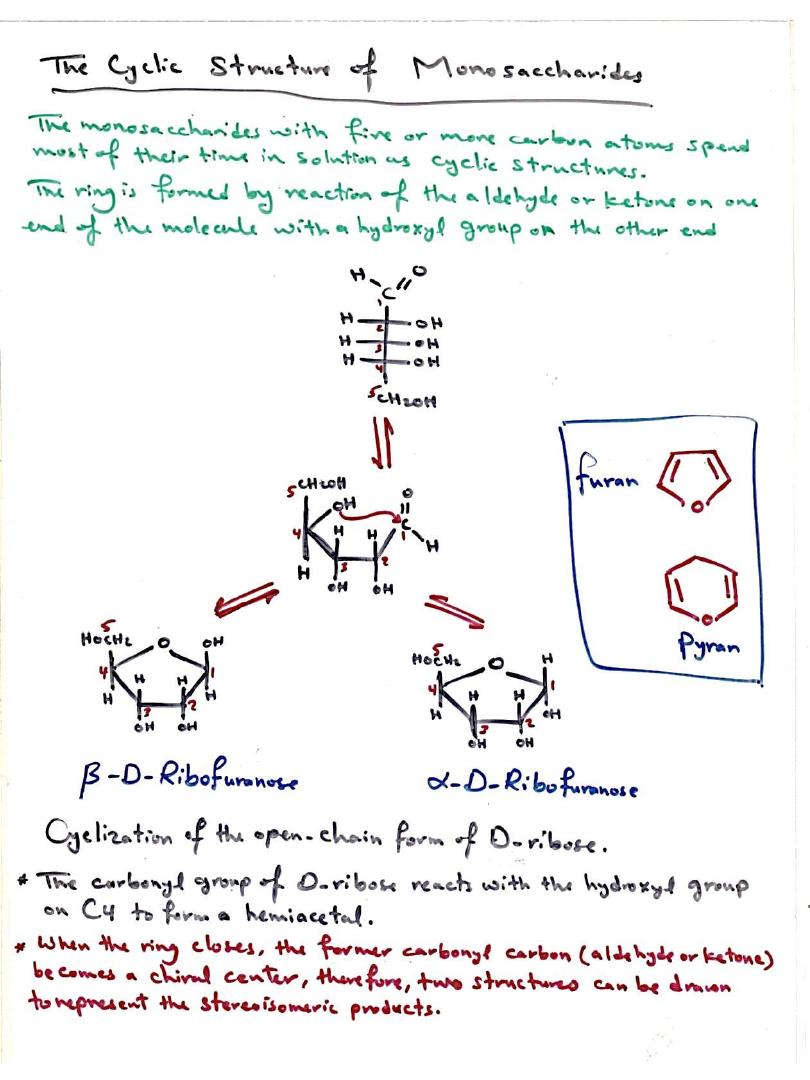 The Cyclic Structure of Monosaccharides
The monosaccharides with five or more carbon atoms spend
most of their time in solution as cyclic structures.
The ring is formed by reaction of the aldehyde or ketone on one
end of the molecule with a hydroxyl group on the other end
H O
C
1
H 2 OH
H 3 OH
H 4 OH
5 CH2OH
furan
O
5 CH2OH
OH O
4 H H C
1 H
H 3 2
OH OH
O
Pyran
5
HOCH2 O OH
4 H H 1
H H
3 2
OH OH
5
HOCH2 O H
4 H H 1
H OH
3 2
OH OH
β-D-Ribofuranose
α-D-Ribofuranose
Cyclization of the open-chain form of D-ribose.
* The carbonyl group of D-ribose reacts with the hydroxyl group
on C4 to form a hemiacetal.
* When the ring closes, the former carbonyl carbon (aldehyde or ketone)
becomes a chiral center, therefore, two structures can be drawn
to represent the stereoisomeric products.